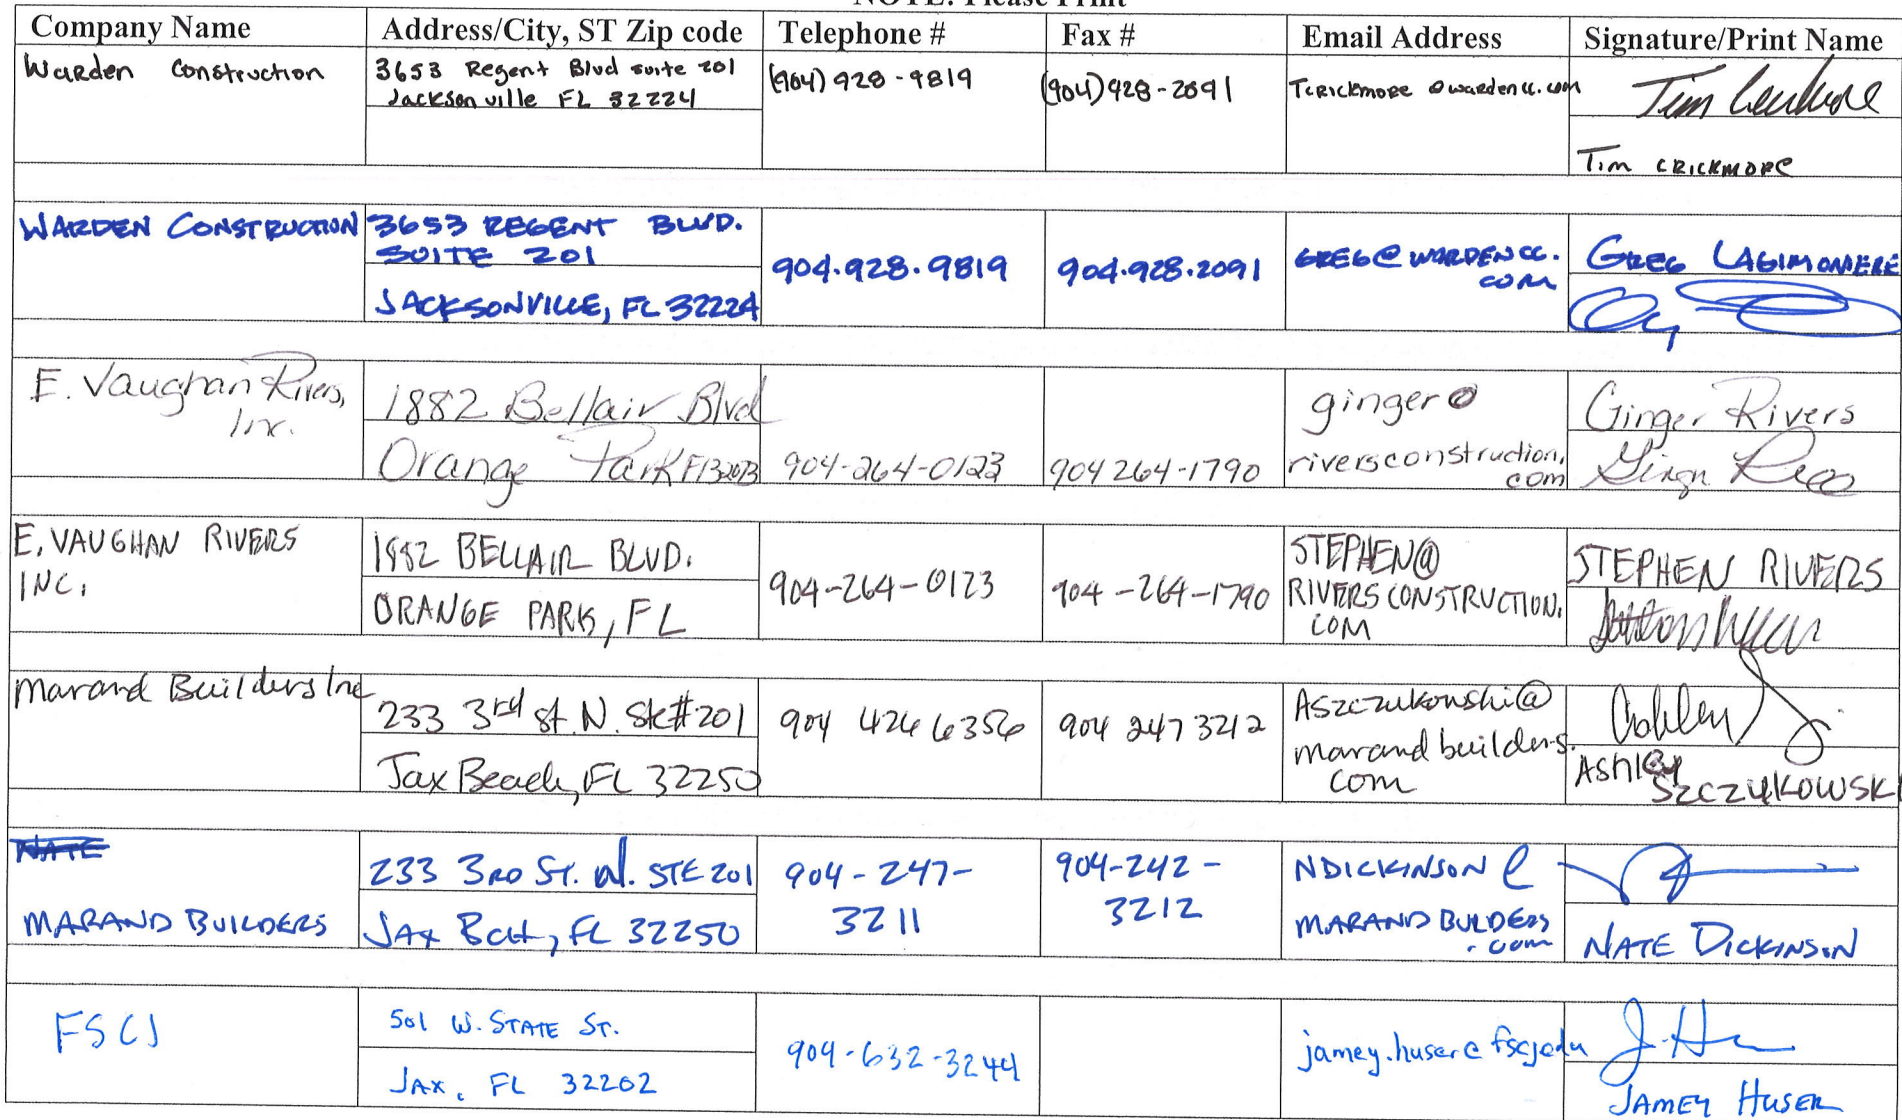 NOTE: Please Print
Company Name Address/City, ST Zip code Telephone # Fax # Email Address Signature/Print Name
Warden Construction
3653 Regent Blvd suite 201
Jacksonville FL 32224
(904) 928-9819
(904) 928-2091
Tcrickmore @wardencc.com
Tim Crickmore
Tim CRICKMORE
WARDEN CONSTRUCTION
3653 REGENT BLVD.
SUITE 201
JACKSONVILLE, FL 32224
904.928.9819
904.928.2091
GREG@WARDENCC.
COM
GREG LAGIMONIERE
E. Vaughan Rivers,
Inc.
1882 Bellair Blvd
Orange Park Fl 32073
904-264-0123
904 264-1790
ginger@
riversconstruction.
com
Ginger Rivers
E. VAUGHAN RIVERS
INC.
1882 BELLAIR BLVD.
ORANGE PARK, FL
904-264-0123
904-264-1790
STEPHEN@
RIVERSCONSTRUCTION.
COM
STEPHEN RIVERS
Marand Builders Inc
233 3rd st. N. Ste#201
Jax Beach, FL 32250
904 426 6356
904 247 3212
ASzczukowski@
marandbuilders.
com
Ashley
SZCZUKOWSKI
NATE
MARAND BUILDERS
233 3RD ST. N. STE 201
JAX BCH, FL 32250
904-247-
3211
904-242-
3212
NDICKINSON@
MARANDBULDERS
.com
NATE DICKINSON
FSCJ
501 W. STATE ST.
JAX, FL 32202
904-632-3244
jamey.huser@fscj.edu
JAMEY HUSER